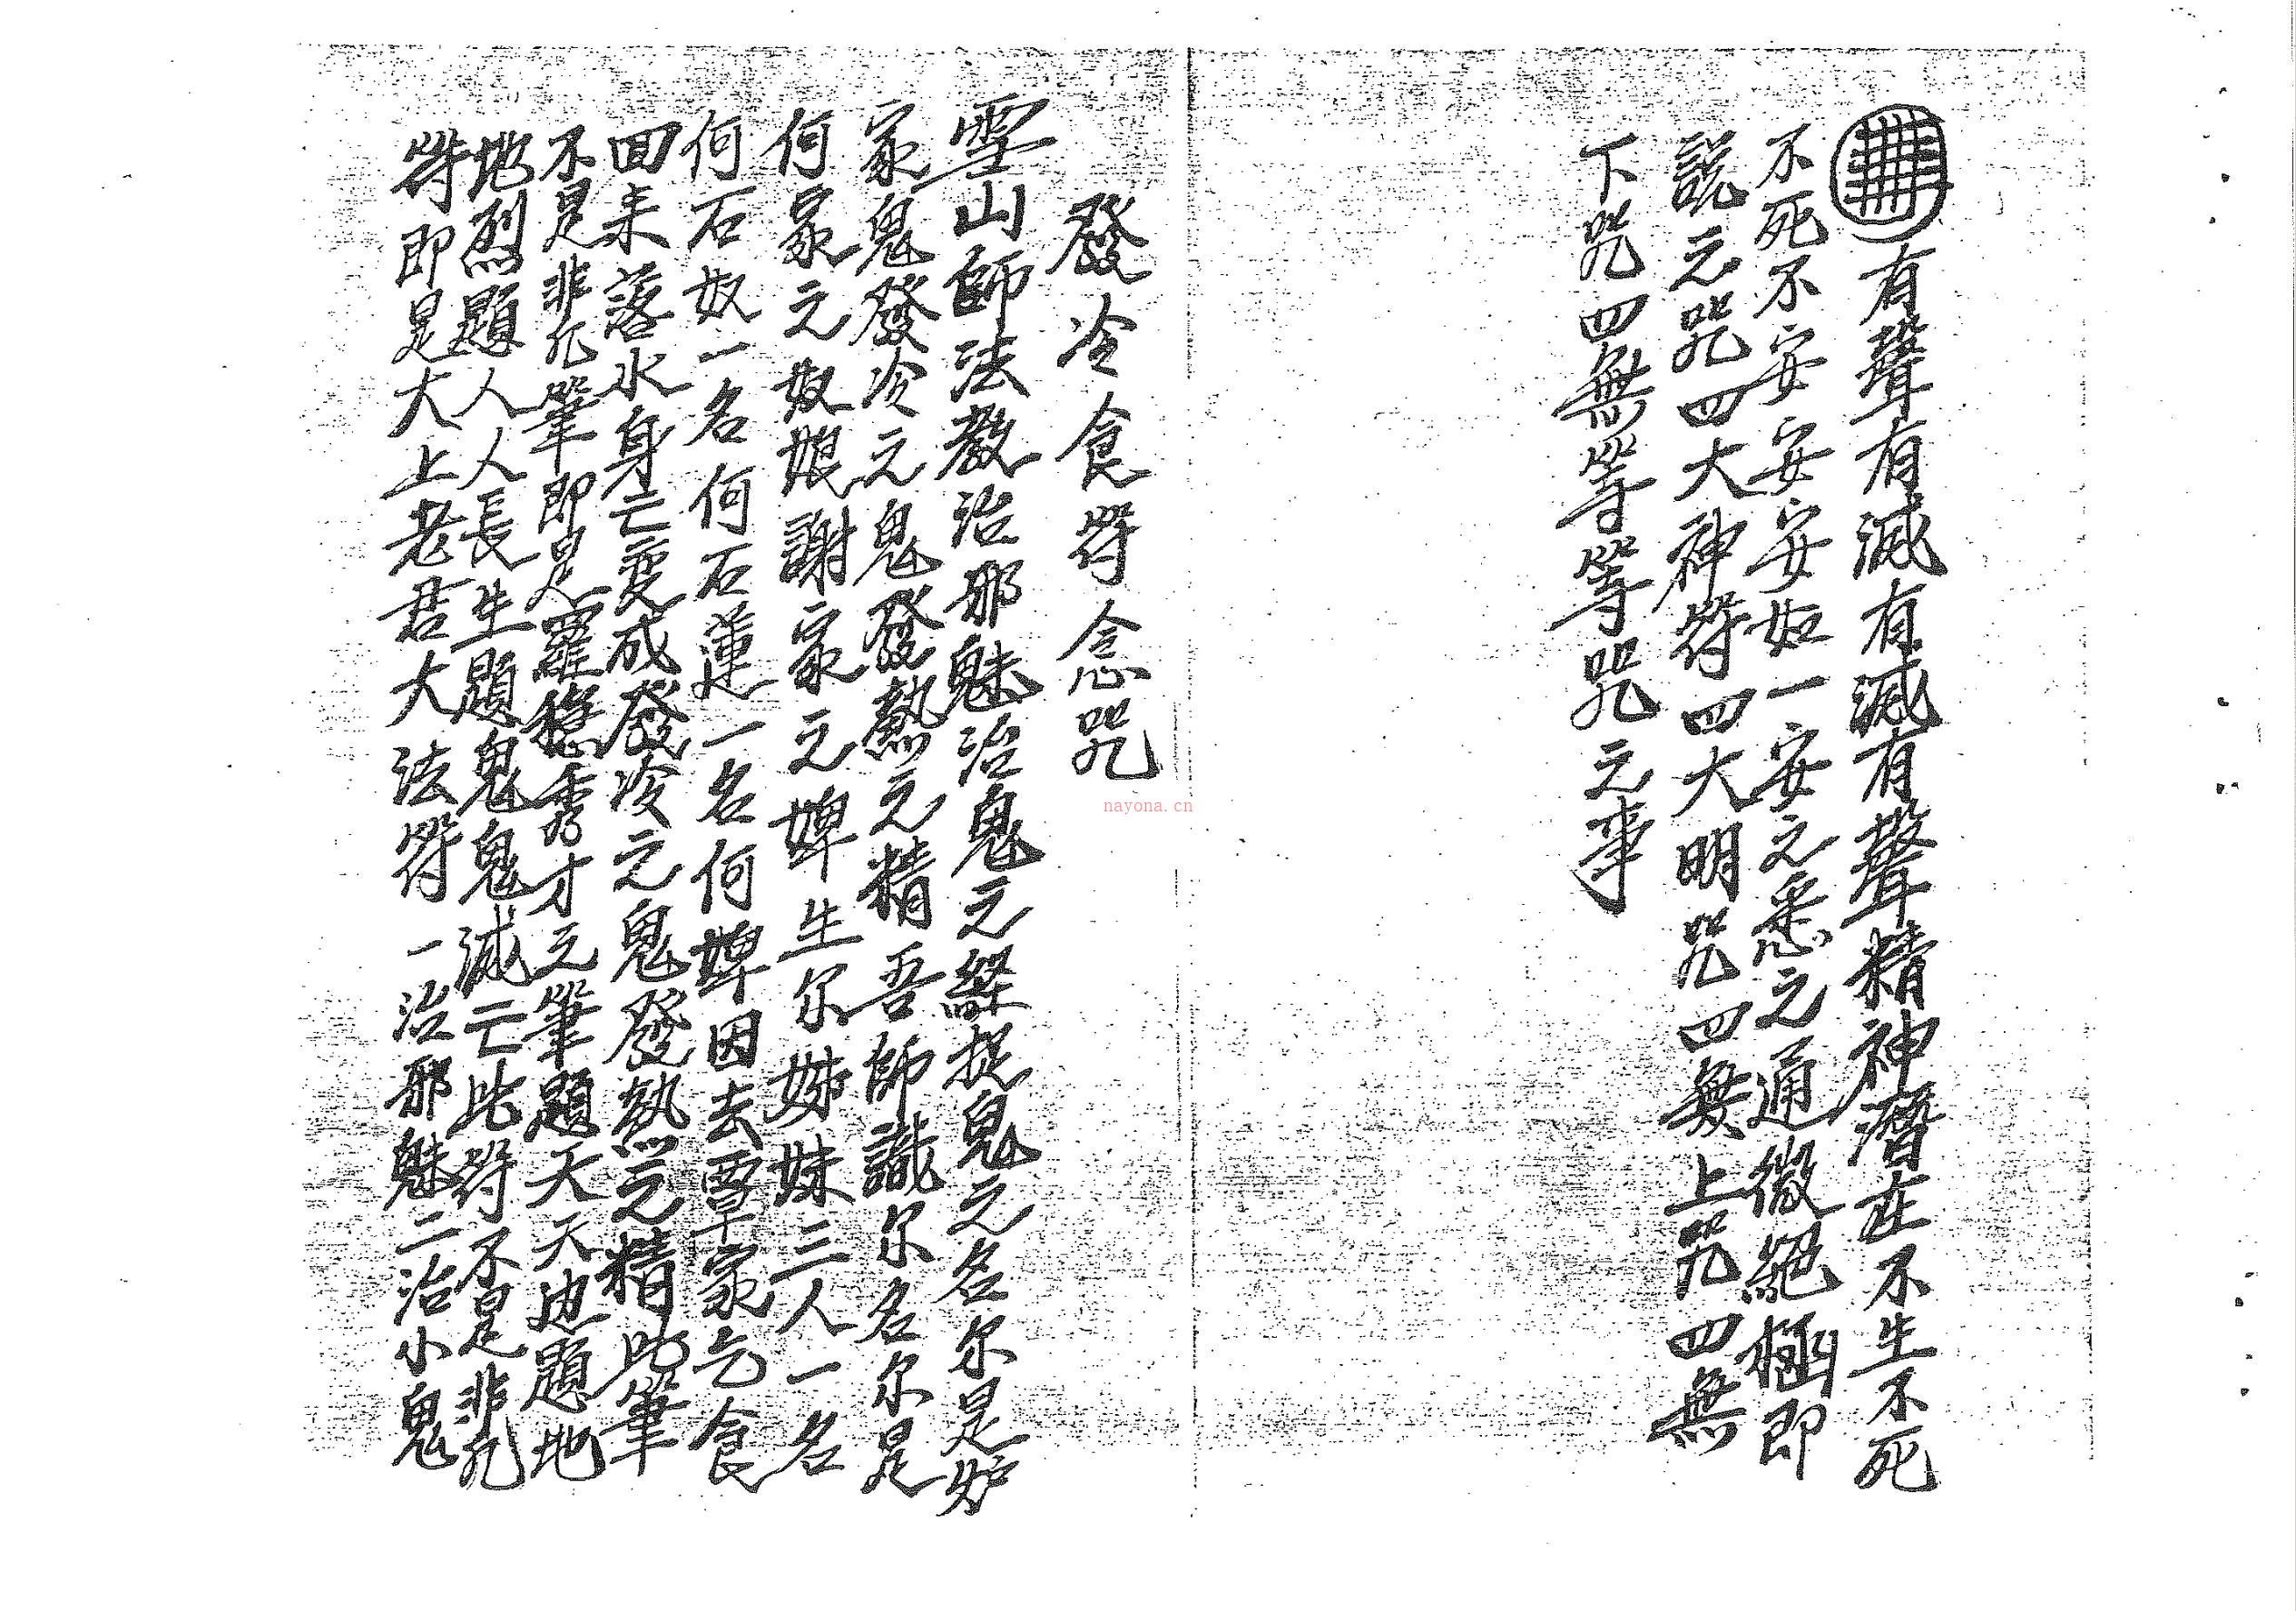 有聲有滅有滅有聲精神潛在不生不死
不死不安安安如一安之悉之通微絕極即
説之咒四大神符四大明咒四無上咒四無
下咒四無等等咒之事
發冷食符念咒
雪山師法教治邪魅治鬼之經捉鬼之名尔是妒
家鬼發冷之鬼發熱之精吾師識尔名尔是
何家之奴娘謝家之婢生尔姊妹三人一名
何石奴一名何石蓮一名何婢因去覃家乞食
回来落水身亡变成發冷之鬼發熱之精此筆
不是非凡筆即是羅穩秀才之筆題天天边題地
地烈題人人長生題鬼鬼滅亡此符不是非凡
符即是大上老君大法符一治邪魅二治小鬼
nayona.cn